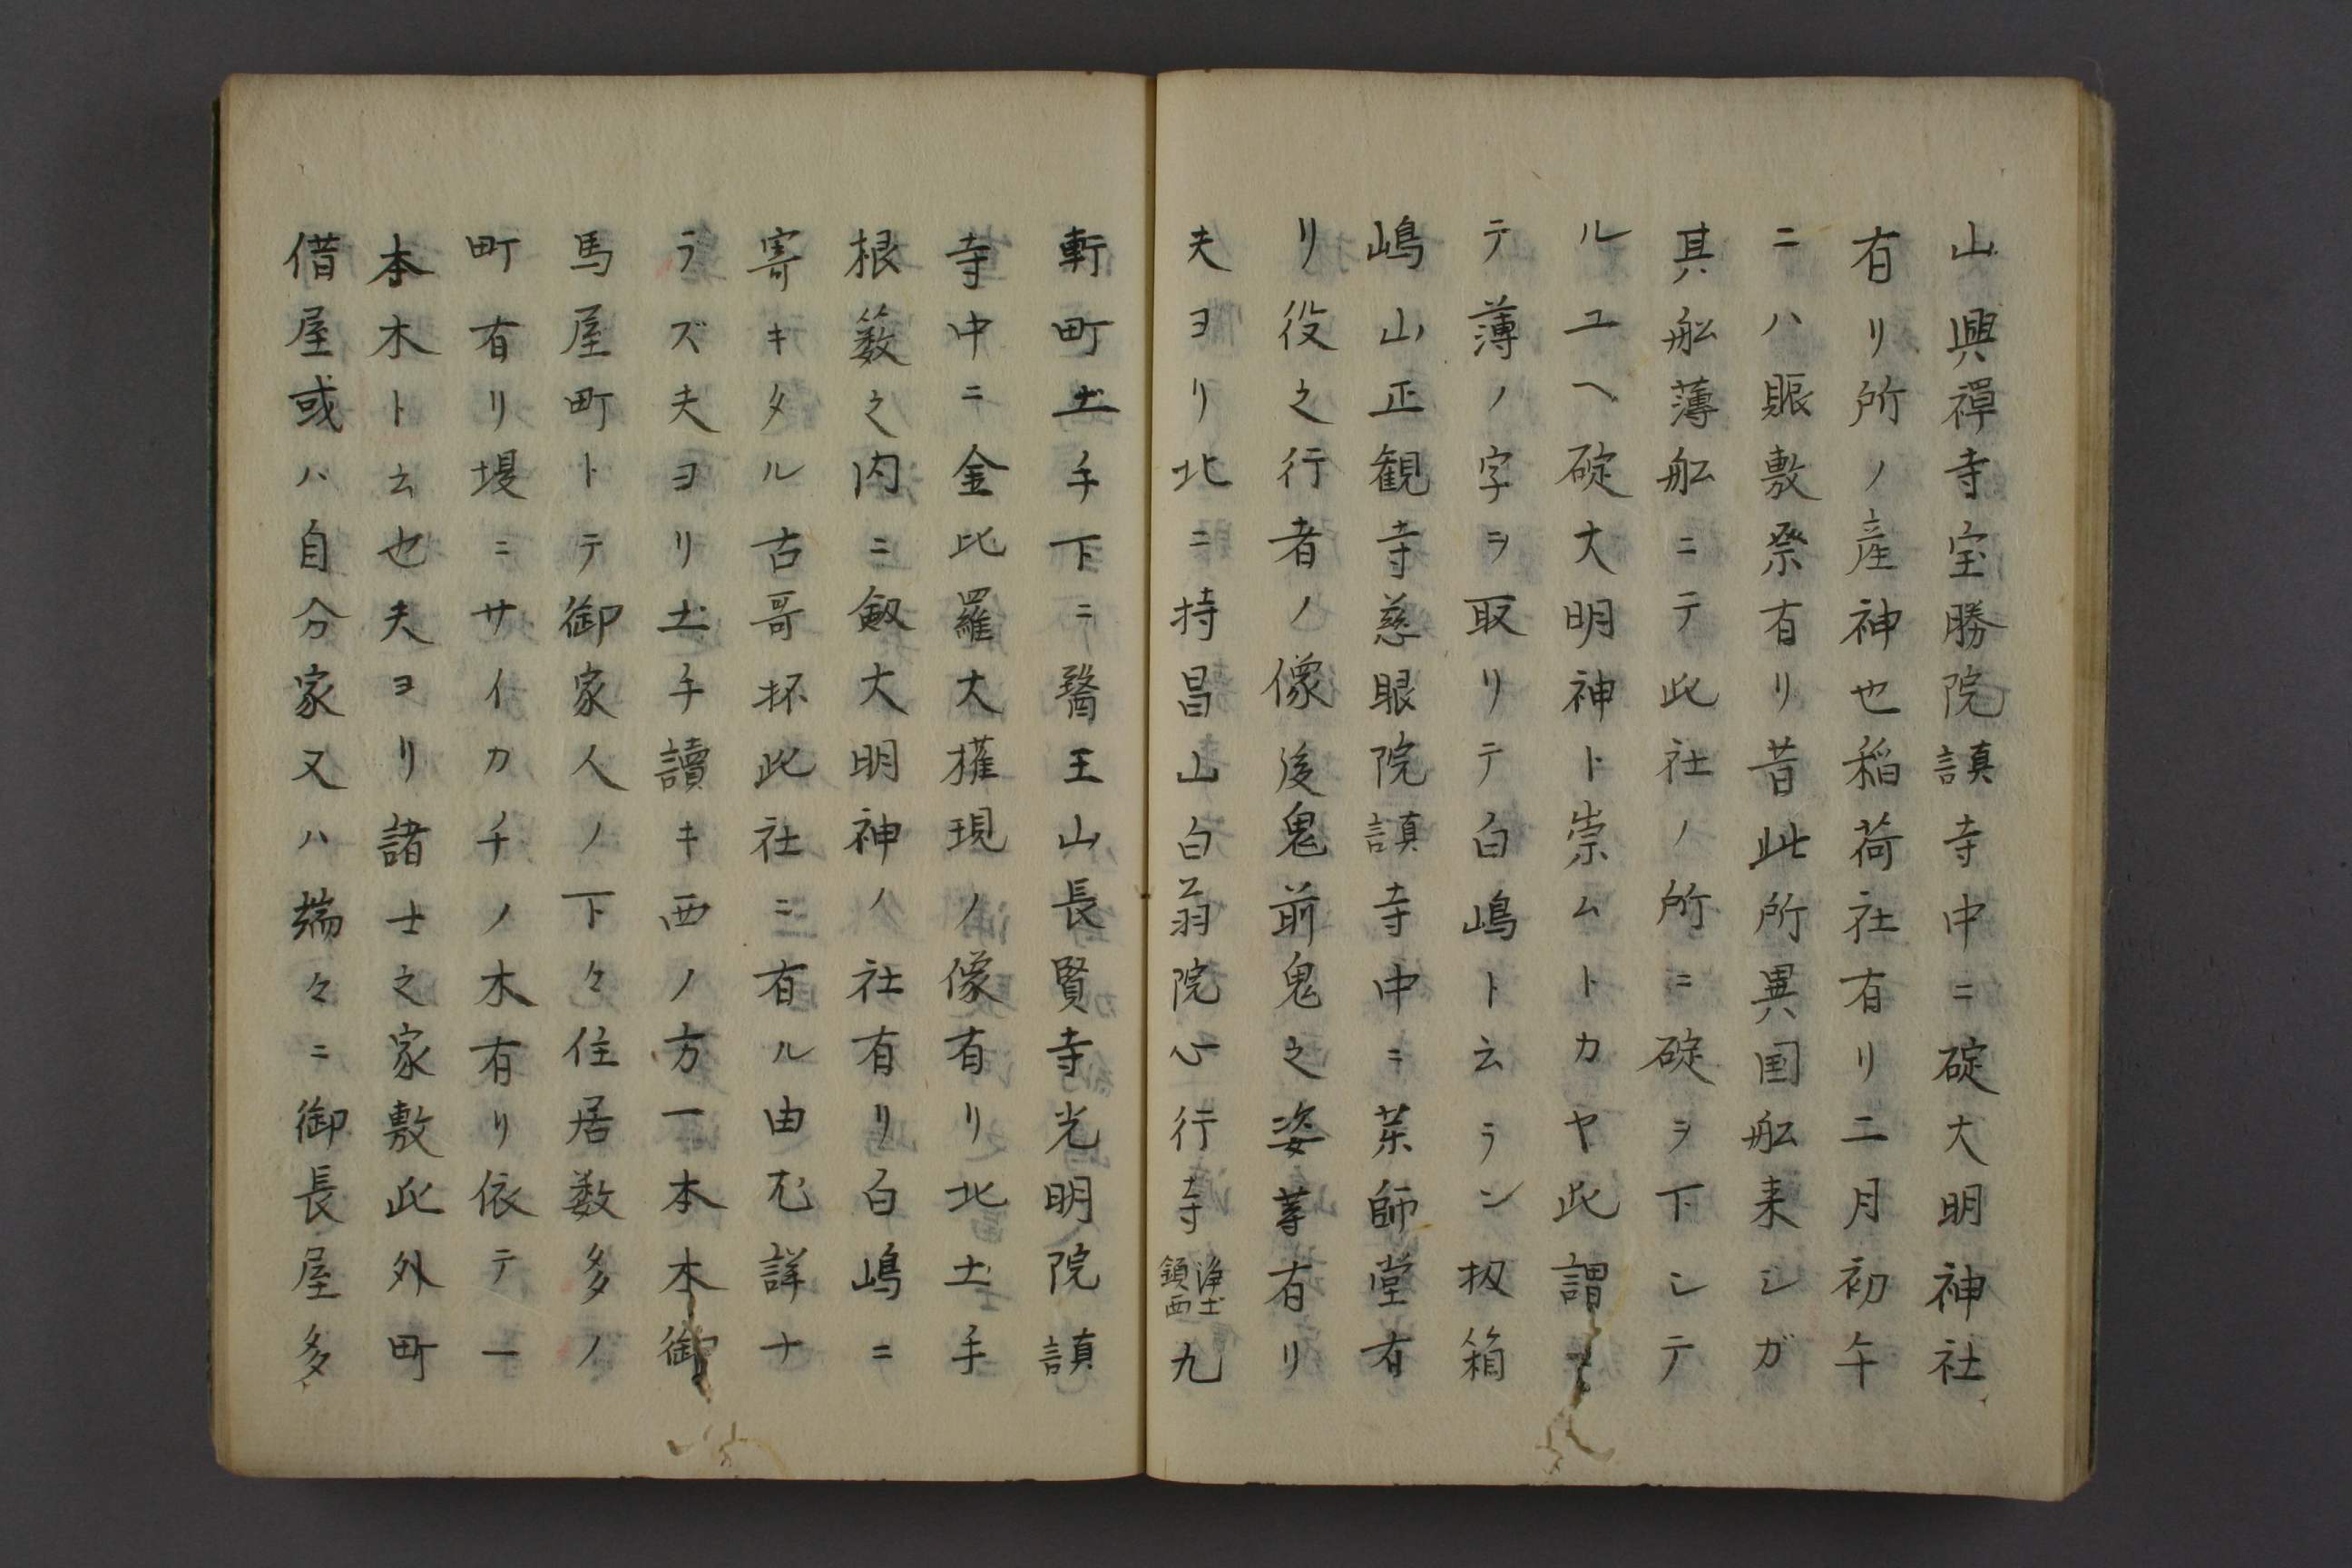 山興禪寺宝勝院眞言寺中ニ碇大明神社
有リ所ノ産神也稲荷社有リ二月初午
ニハ賑敷祭有リ昔此所異国舩来シガ
其舩薄舩ニテ此社ノ所ニ碇ヲ下シテ
ルユヘ碇大明神ト崇ムトカヤ此謂
テ薄ノ字ヲ取リテ白嶋ト云ラン扨箱
嶋山正観寺慈眼院眞言寺中ニ茶師堂有
リ役之行者ノ像後鬼前鬼之姿等有リ
夫ヨリ北ニ持昌山白翁院心行寺浄土鎮西九
軒町土手下ニ醫王山長賢寺光明院眞言
寺中ニ金比羅大権現ノ像有リ北土手
根籔之内ニ劔大明神ノ社有リ白嶋ニ
寄キタル古哥抔此社ニ有ル由尓詳ナ
ラズ夫ヨリ土手讀キ西ノ方一本木御
馬屋町トテ御家人ノ下々住居数多ノ
町有リ堤ニサイカチノ木有リ依テ一
本木ト云也夫ヨリ諸士之家敷此外町
借屋或ハ自分家又ハ端々ニ御長屋多